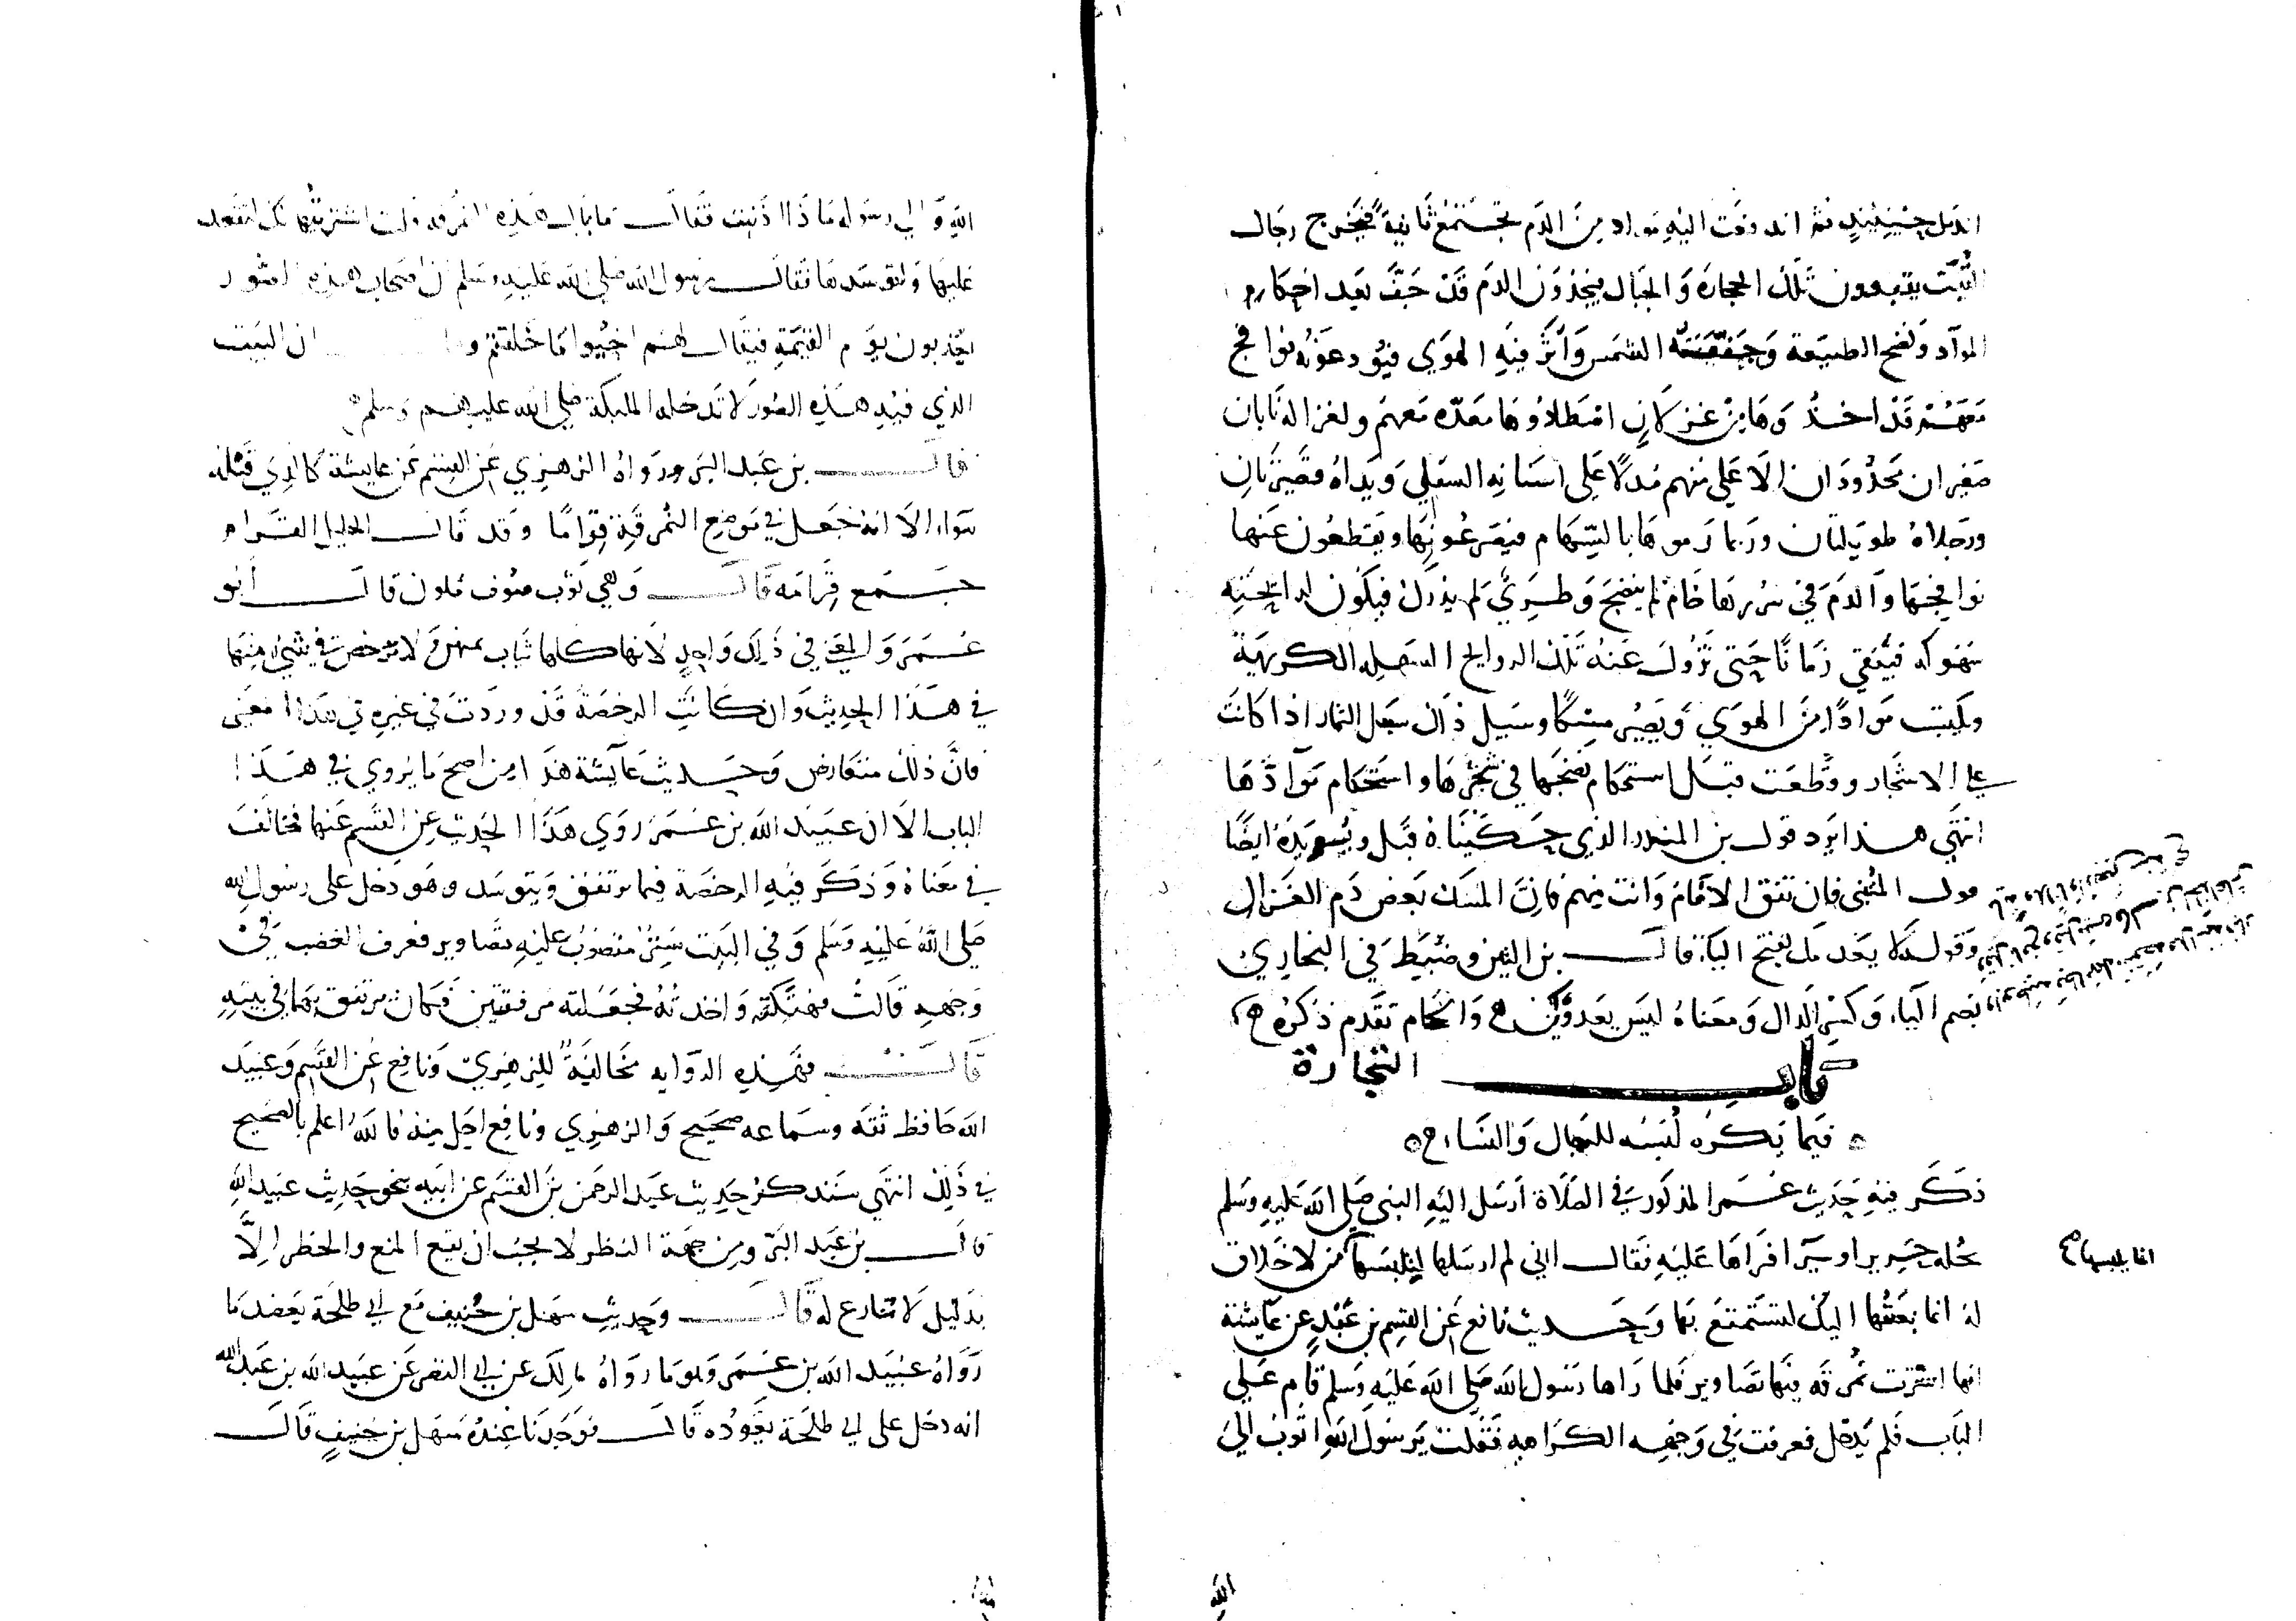 اندمل حينئذ ثم اندفعت اليه مواد من الدم تجتمع ثانية فيخرج رجال
التبت يتبعون تلك الحجارة والجبال فيجدون الدم قد جف بعد احكام
المواد ونضج الطبيعة وجففته الشمس واثر فيه الهوي فيودعونه نوافج
معهم قد اخذوها من غزلان اصطادوها معدة معهم ولغزاله نابان
صغيران محدودان الاعلي منهم مدلا علي اسنانه السفلي ويداه قصيرتان
ورجلاه طويلتان وربما رموها بالسهام فيصرعونها ويقطعون عنها
نوافجها والدم في سررها خام لم ينضج وطري لم يدرك فيكون لرايحته
سهوكه فيبقي زمانا حتي تزول عنه تلك الروايح السهله الكريهة
ويكتسب موادا من الهوي ويصير مسكا وسبيل ذلك سبيل الثمار اذا كانت
علي الاشجار وقطعت قبل استحكام نضجها في شجرها واستحكام موادها
انتهي هذا يرد قول بن المنذر الذي حكيناه قبل ويويده ايضا
قول المتنبي فان تفق الانام وانت منهم فان المسك بعض دم الغزال
وقوله لا يعدمك بفتح الياء قال بن التين وضبط في البخاري
بضم الياء وكسر الدال ومعناه ليس يعدوك والحجام تقدم ذكره
كتاب التجارة
فيما يكره لبسه للرجال والنساء
ذكر فيه حديث عمر المذكور في الصلاة ارسل اليه النبي صلي الله عليه وسلم
بحله حرير او سيرا فراها عليه فقال اني لم ارسلها لتلبسها من لا خلاق
انما يلبسها
له انما بعثتها اليك لتستمتع بها وحديث نافع عن القسم بن عن عايشة
انها اشترت نمرقه فيها تصاوير فلما راها رسول الله صلي الله عليه وسلم قام علي
الباب فلم يدخل فعرفت في وجهه الكراهيه فقلت يرسول الله اتوب الي
الله
الله والي رسوله ماذا اذنبت فقال ما بال هذه النمرقه قلت اشتريتها لك لتقعد
عليها وتتوسدها فقال رسول الله صلي الله عليه وسلم ان اصحاب هذه الصور
يعذبون يوم القيمة فيقال لهم احيوا ما خلقتم ان البيت
الذي فيه هذه الصور لا تدخله المليكة صلي الله عليهم وسلم
قال بن عبد البر ورواه الزهري عن القسم عن عايشة كالذي قبله
سواء الا انه جعل في موضع النمرقة قراما وقد قال الخليل القرام
جمع قرامه قال وهي ثوب صوف ملون قال ابو
عمر والمعني في ذلك واحد لانها كلها ثياب تمتهن ولا ترخص في شيء منها
في هذا الحديث وان كانت الرخصة قد وردت في غيره في هذا المعني
فان ذلك متعارض وحديث عايشة هذا من اصح ما يروي في هذا
الباب الا ان عبيد الله بن عمر روي هذا الحديث عن القسم عنها فخالف
في معناه وذكر فيه الرخصة فيما يرتفق ويتوسد وهو دخل علي رسول الله
صلي الله عليه وسلم وفي البيت ستر منصوب عليه تصاوير فعرف الغضب في
وجهه قالت فهتكته واخذته فجعلته مرفقتين فكان يرتفق بهما في بيته
قال فهذه الروايه مخالفة للزهري ونافع عن القسم وعبيد
الله حافظ ثقه وسماعه صحيح والزهري ونافع اجل منه فالله اعلم بالصحيح
في ذلك انتهي سنذكر حديث عبد الرحمن بن القسم عن ابيه نحو حديث عبيد الله
قال بن عبد البر ومن جهة النظر لا يجب ان يقع المنع والحظر الا
بدليل لا منازع له قال وحديث سهل بن حنيف مع ابي طلحة يعضد ما
رواه عبيد الله بن عمر وهو ما رواه مالك عن ابي النضر عن عبيد الله بن عبد الله
انه دخل علي ابي طلحة يعوده قال فوجدنا عنده سهل بن حنيف قال